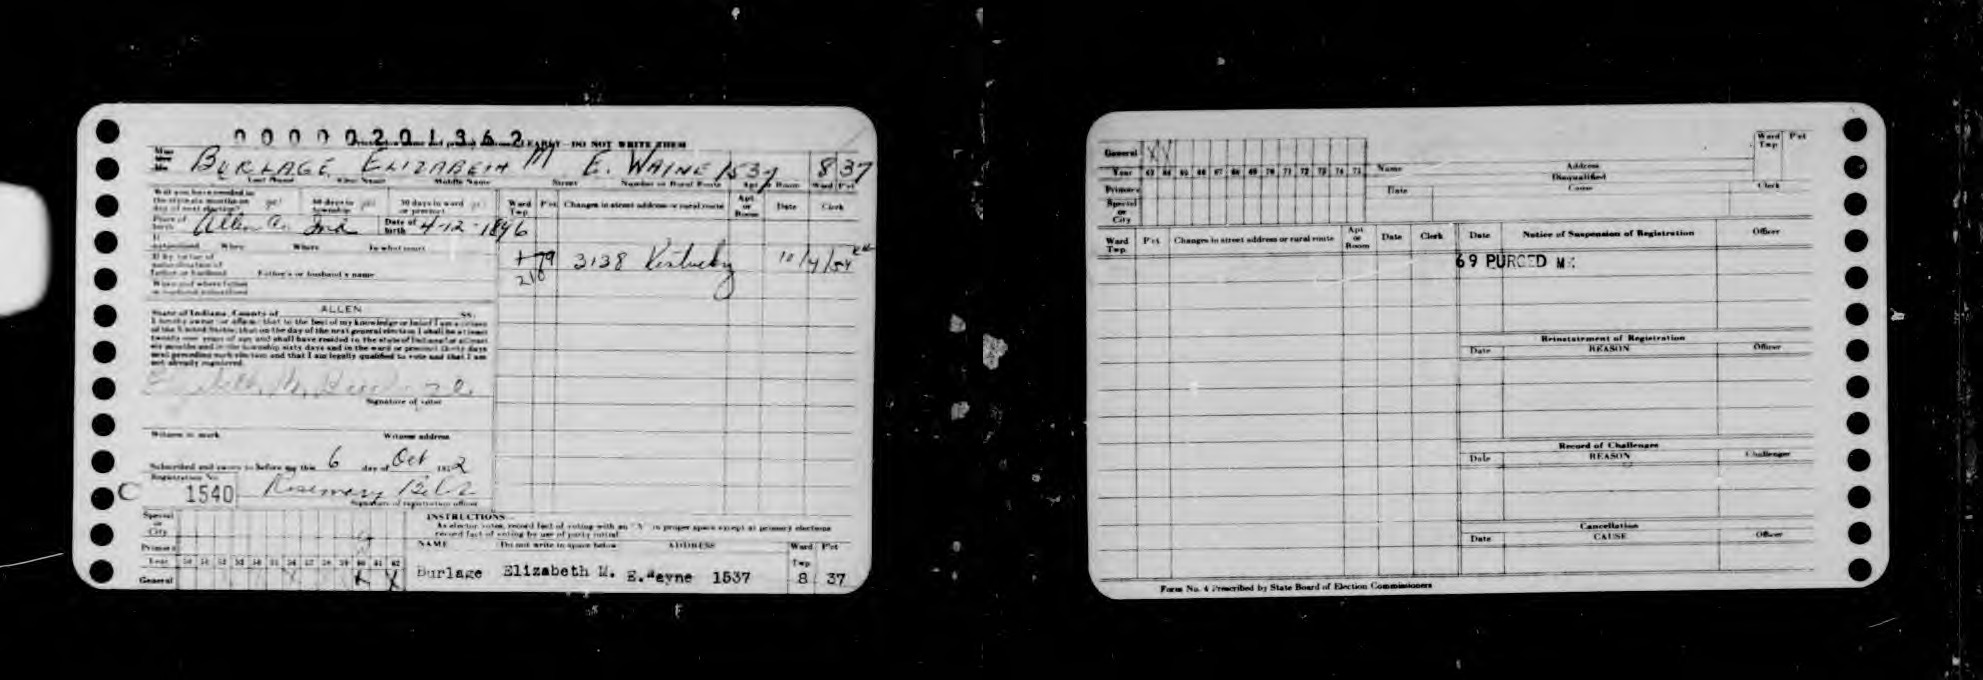 0000201362
CLEARLY - DO NOT WRITE THEM
BURLAGE ELIZABETH M E. WAINE 1537 8 37
Last Name First Name Middle Name Street Number or Rural Route Apt or Room Ward P'ct
Will you have resided in
the state six months on
day of next election? yes 60 days in township yes 30 days in ward or precinct yes
Ward Twp. P'ct Changes in street address or rural route Apt. or Room Date Clerk
Place of birth Allen Co. Ind Date of birth 4-12-1896
If naturalized When Where In what court
79 3138 Kentucky 10/4/54
218
If by virtue of
naturalization of
father or husband Father's or husband's name
When and where father
or husband naturalized
State of Indiana, County of ALLEN SS.
I hereby swear (or affirm) that to the best of my knowledge or belief I am a citizen
of the United States; that on the day of the next general election I shall be at least
twenty-one years of age and shall have resided in the state of Indiana for at least
six months and in the township sixty days and in the ward or precinct thirty days
next preceding such election and that I am legally qualified to vote and that I am
not already registered.
Elizabeth M. Burlage
Signature of voter
Witness to mark Witness address
Subscribed and sworn to before me this 6 day of Oct 1952
Registration No.
C 1540 Rosemary
Signature of registration officer
Special or City
Primary
Year
General X X
INSTRUCTIONS
As elector votes, record fact of voting with an "X" in proper space except at primary elections
record fact of voting by use of party initial
NAME Do not write in space below ADDRESS Ward Twp. P'ct
Burlage Elizabeth M. E. Wayne 1537 8 37
General X X
Year 63 64 65 66 67 68 69 70 71 72 73 74 75
Primary
Special or City
Name Address Ward Twp. P'ct
Disqualified
Date Cause Clerk
Ward Twp. P'ct Changes in street address or rural route Apt or Room Date Clerk
Date Notice of Suspension of Registration Officer
69 PURGED
Reinstatement of Registration
Date REASON Officer
Record of Challenges
Date REASON Challenger
Cancellation
Date CAUSE Officer
Form No. 4 Prescribed by State Board of Election Commissioners